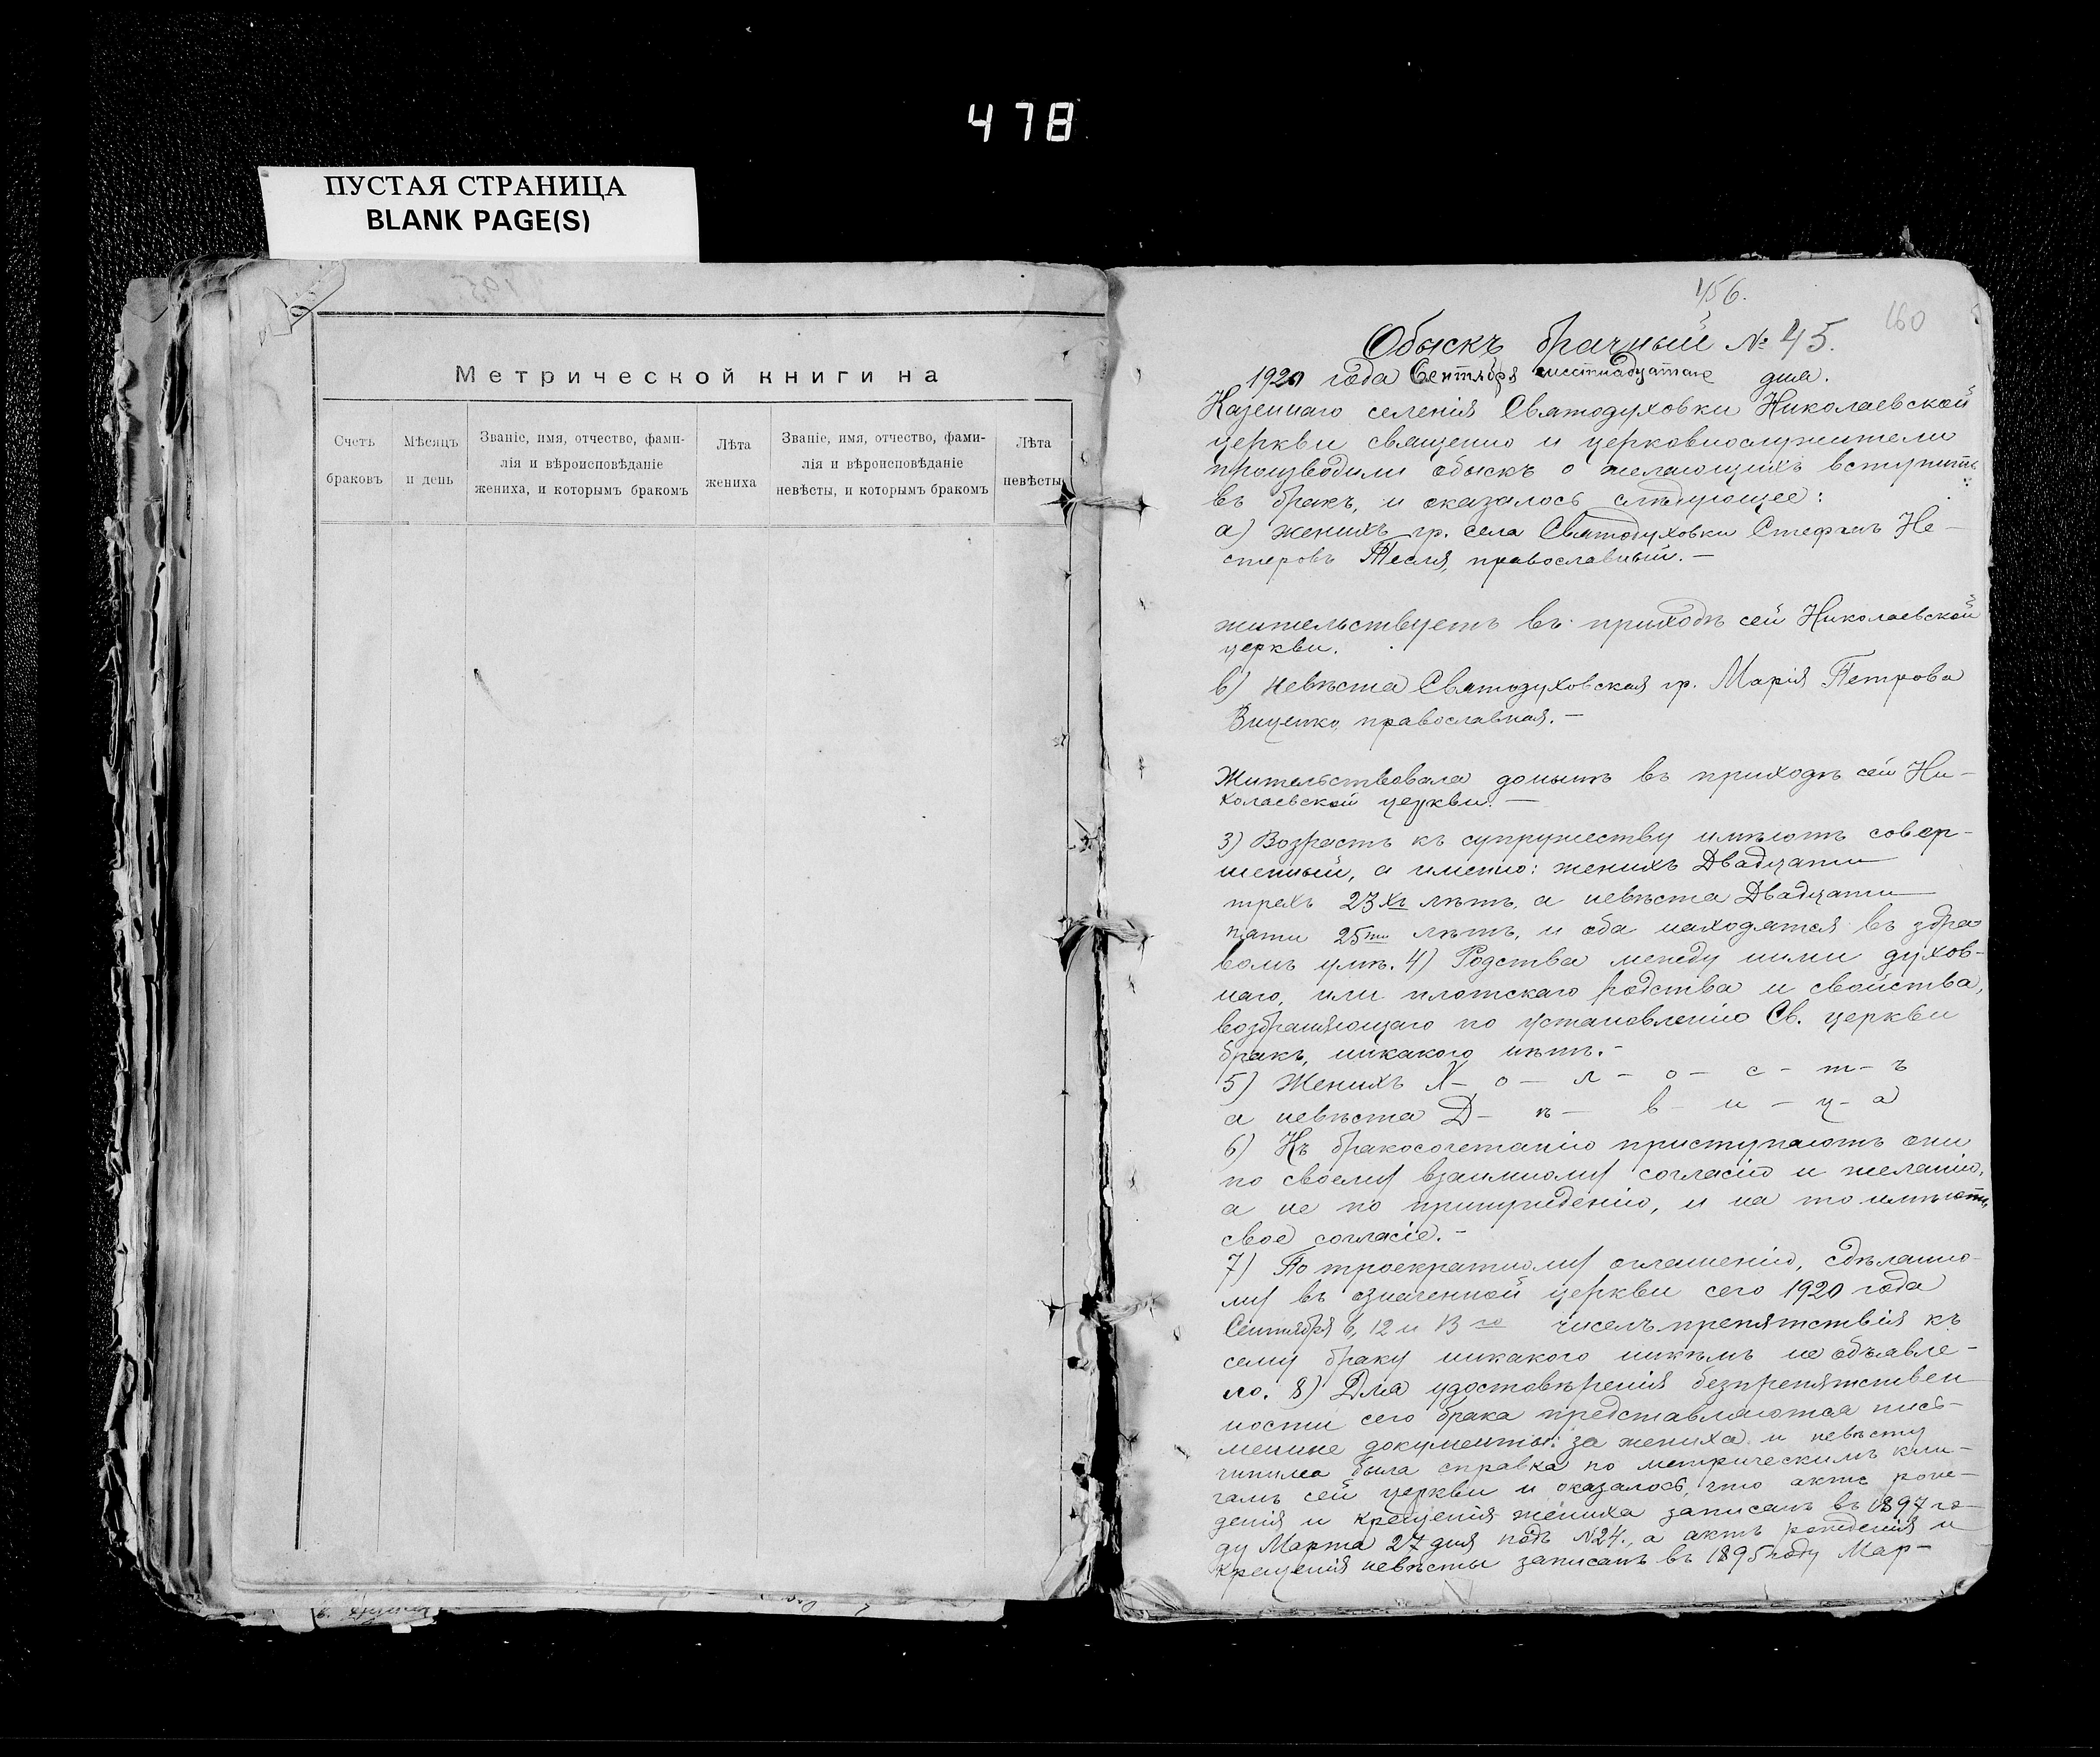 478
ПУСТАЯ СТРАНИЦА
BLANK PAGE(S)
Метрической книги на
Счетъ браковъ
Мѣсяцъ и день
Званіе, имя, отчество, фами-
лія и вѣроисповѣданіе
жениха, и которымъ бракомъ
Лѣта жениха
Званіе, имя, отчество, фами-
лія и вѣроисповѣданіе
невѣсты, и которымъ бракомъ
Лѣта невѣсты
156.
160
Обыскъ брачный № 45.
1920 года Сентября шестнадцатаго дня.
Казеннаго селенія Святодуховки Николаевской
церкви священно и церковнослужители
производили обыскъ о желающихъ вступить
въ бракъ, и оказалось слѣдующее:
а) женихъ гр. села Святодуховки Стефанъ Не-
стеровъ Тесля, православный. —
жительствуетъ въ приходѣ сей Николаевской
церкви.
в) невѣста Святодуховская гр. Марія Петрова
православная. —
Жительствовала донынѣ въ приходѣ сей Ни-
колаевской церкви. —
3) Возрастъ къ супружеству имѣютъ совер-
шенный, а именно: женихъ Двадцати
трехъ 23хъ лѣтъ, а невѣста Двадцати
пяти 25ти лѣтъ, и оба находятся въ здра-
вомъ умѣ. 4) Родства между ними духов-
наго, или плотскаго родства и свойства,
возбраняющаго по установленію Св. церкви
бракъ, никакого нѣтъ. -
5) Женихъ Х - о - л - о - с - т - ъ
а невѣста Д - ѣ - в - и - ц - а
6) Къ бракосочетанію приступаютъ они
по своему взаимному согласію и желанію,
а не по принужденію, и на то имѣютъ
свое согласіе. -
7) По троекратному оглашенію, сдѣланно-
му въ означенной церкви сего 1920 года
Сентября 6, 12 и 13го чиселъ препятствія къ
сему браку никакого никѣмъ не объявле-
но. 8) Для удостовѣренія безпрепятствен
ности сего брака представляются пись-
менные документы: за жениха и невѣсту
чинима была справка по метрическимъ кни-
гамъ сей церкви и оказалось, что актъ рож-
денія и крещенія жениха записанъ въ 1897 го-
ду Марта 27 дня подъ №24., а актъ рожденія и
крещенія невѣсты записанъ въ 1895 году Мар-